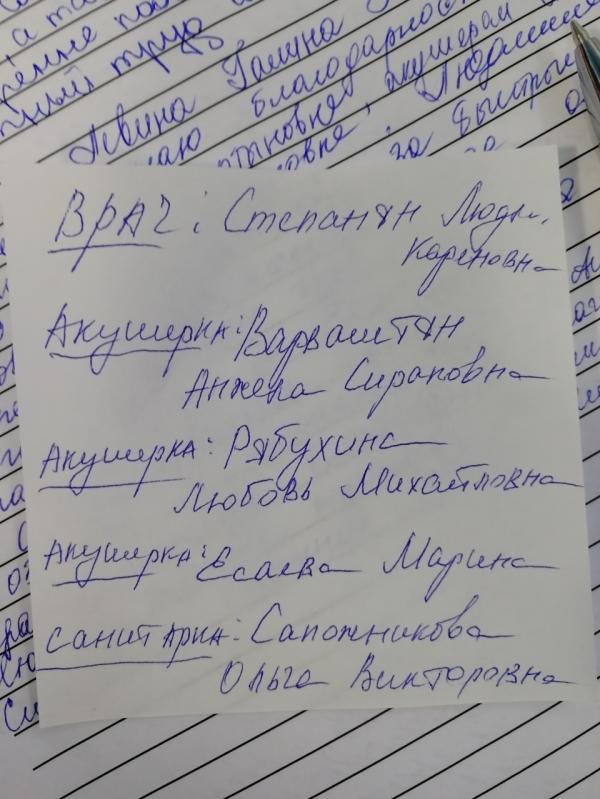 а та
тный труд
Певина Галина
благодарность
акушерам
Людмиле
за быстры
Врач: Степанян Людм.
Кареновна
Акушерка: Варваштян
Анжела Сираковна
Акушерка: Рябухина
Любовь Михайловна
Акушерка: Есаева Марина
Санитарка: Сапожникова
Ольга Викторовна